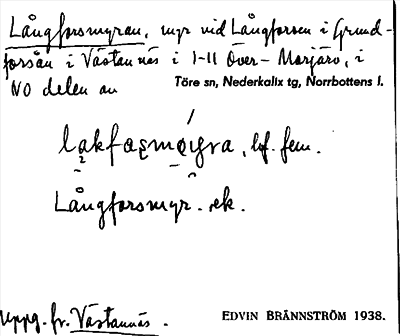 Långforsmyran, myr vid Långforsen i Grund-
forsån i Västannäs i 1-11 Över-Morjärv, i
NO delen av Töre sn, Nederkalix tg, Norrbottens l.
Långforsmyr. ek.
Uppg. fr. Västannäs. EDVIN BRÄNNSTRÖM 1938.